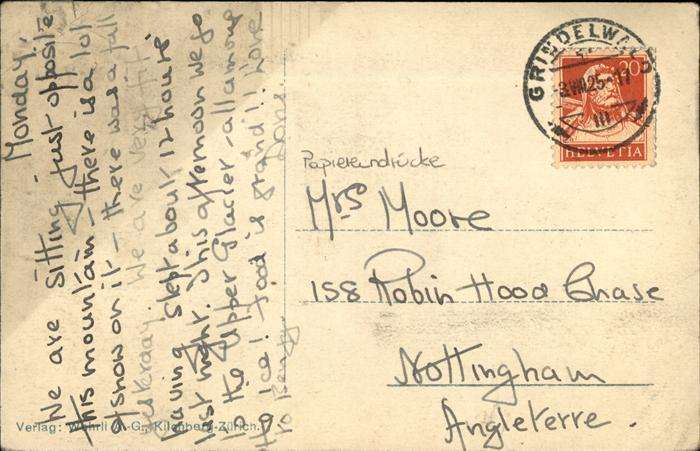 Monday.
We are sitting just opposite
this mountain - there is a lot
of snow on it - there was a fall
yesterday. We are very fit
having slept about 12 hours
last night. This afternoon we go
to the Upper Glacier - all among
the Ice! Food is grand!! Love
to
GRINDELWALD
25-17
III
20
HELVETIA
Papiereindrücke
Mrs Moore
158 Robin Hood Chase
Nottingham
Angleterre.
Verlag: Wehrli A.-G., Kilchberg-Zürich.